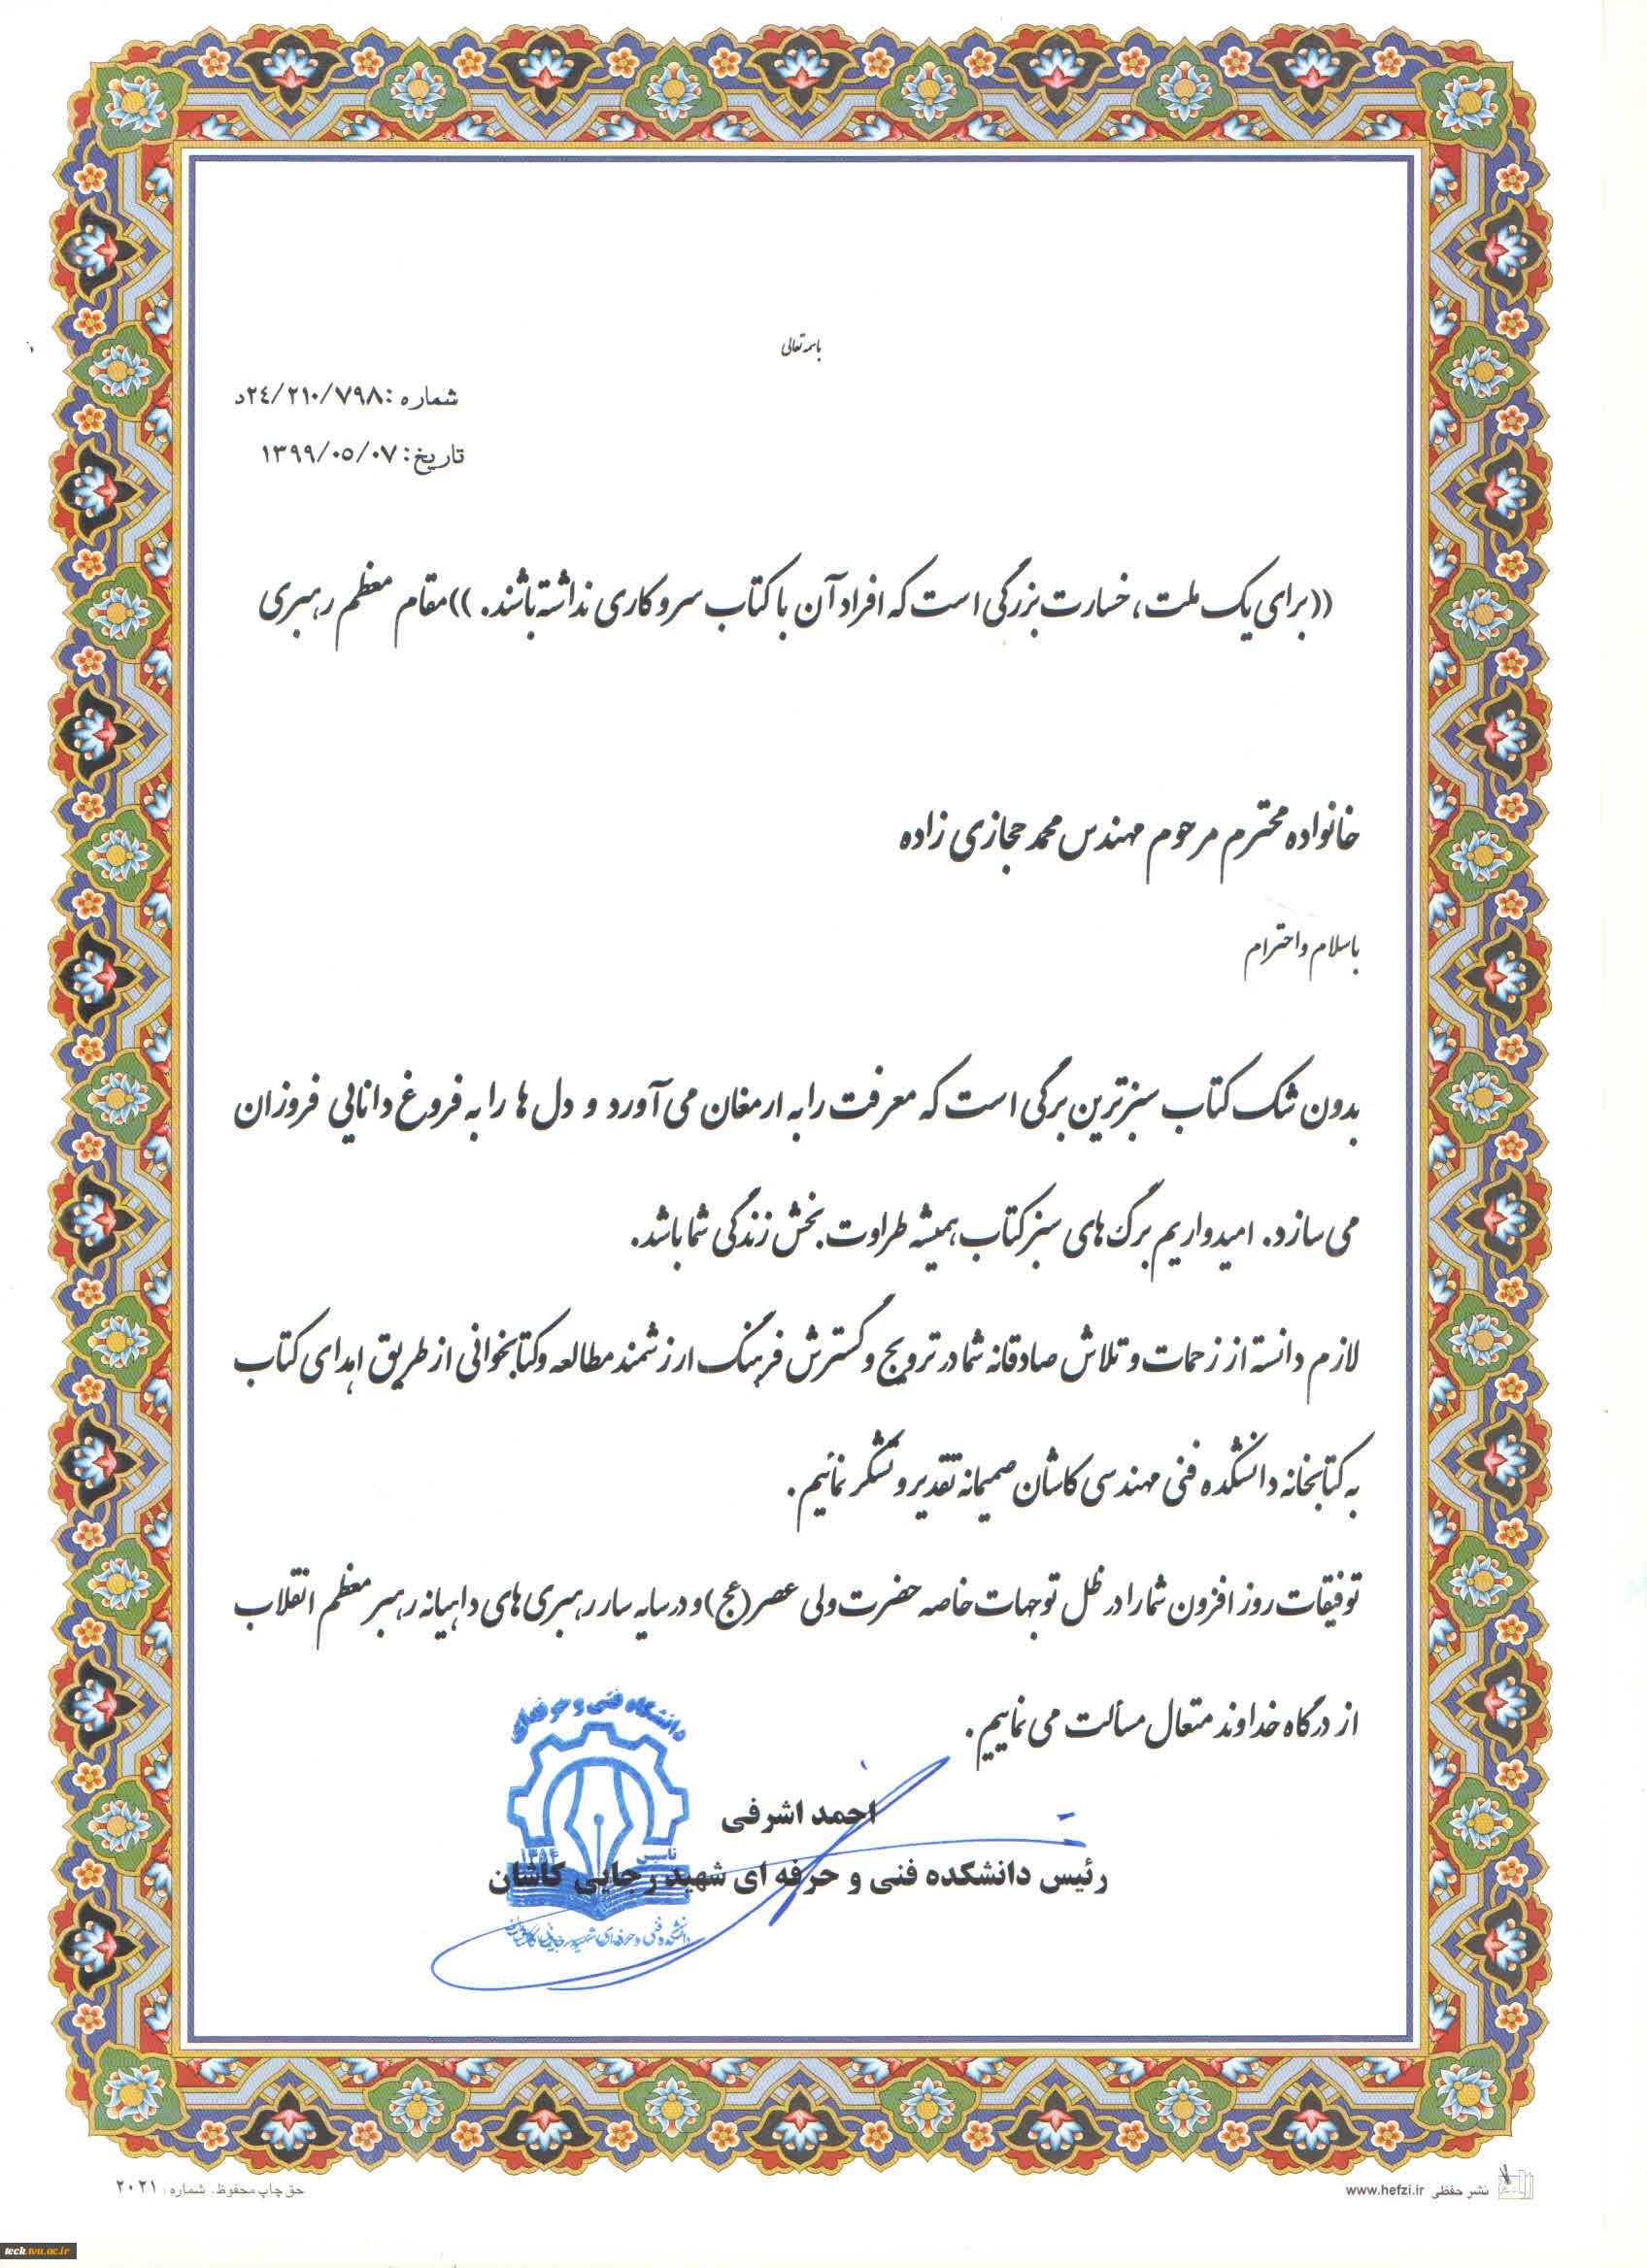 باسمه تعالی
شماره :۲۴/۲۱۰/۷۹۸د
تاریخ: ۱۳۹۹/۰۵/۰۷
((برای یک ملت، خسارت بزرگی است که افراد آن با کتاب سروکاری نداشته باشند. ))مقام معظم رهبری
خانواده محترم مرحوم مهندس محمد حجازی زاده
باسلام و احترام
بدون شک کتاب سبزترین برگی است که معرفت را به ارمغان می آورد و دل ها را به فروغ دانایی فروزان
می سازد. امیدواریم برگ های سبز کتاب همیشه طراوت بخش زندگی شما باشد.
لازم دانسته از زحمات و تلاش صادقانه شما در ترویج و گسترش فرهنگ ارزشمند مطالعه و کتابخوانی از طریق اهدای کتاب
به کتابخانه دانشکده فنی مهندسی کاشان صمیمانه تقدیر و تشکر نمائیم.
توفیقات روز افزون شما را در ظل توجهات خاصه حضرت ولی عصر(عج)و در سایه سار رهبری های داهیانه رهبر معظم انقلاب
از درگاه خداوند متعال مسألت می نماییم.
دانشگاه فنی و حرفه‌ای
احمد اشرفی
تاسیس ۱۳۵۴
رئیس دانشکده فنی و حرفه ای شهید رجایی کاشان
دانشکده فنی و حرفه‌ای شهید رجایی کاشان
نشر حفظی www.hefzi.ir
حق چاپ محفوظ. شماره : ۲۰۲۱
teck.tvu.ac.ir